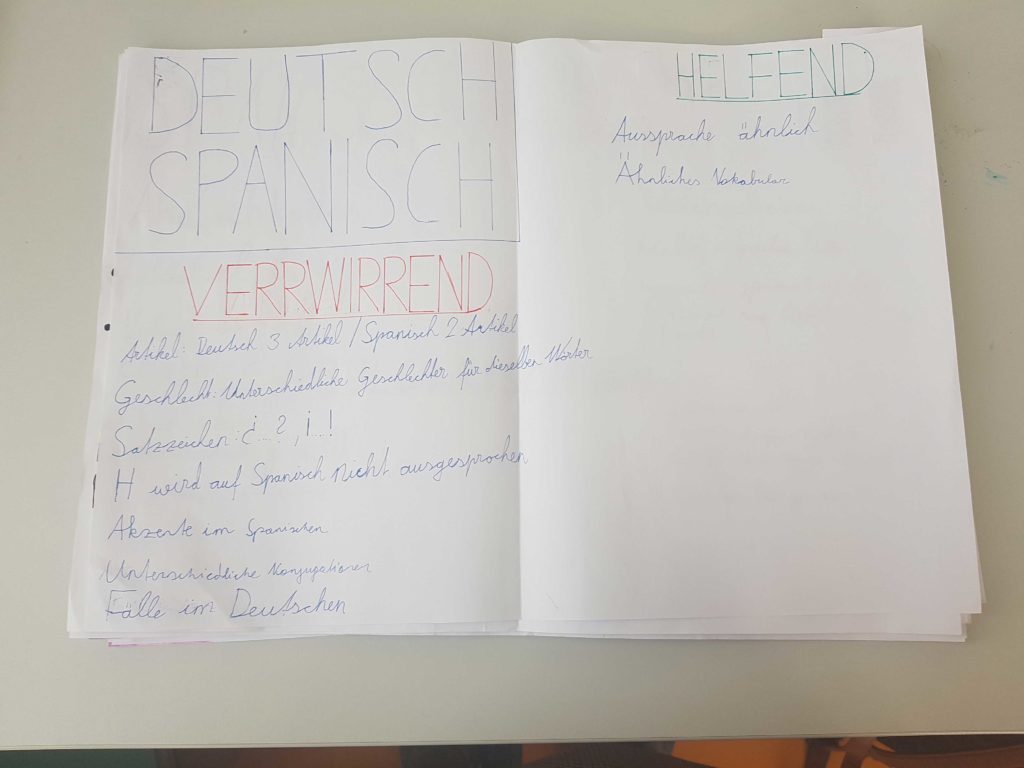 DEUTSCH
SPANISCH
VERRWIRREND
Artikel: Deutsch 3 Artikel / Spanisch 2 Artikel
Geschlecht: Unterschiedliche Geschlechter für dieselben Wörter
Satzzeichen: ¿...?, ¡...!
H wird auf Spanisch nicht ausgesprochen
Akzente im Spanischen
Unterschiedliche Konjugationen
Fälle im Deutschen
HELFEND
Aussprache ähnlich
Ähnliches Vokabular